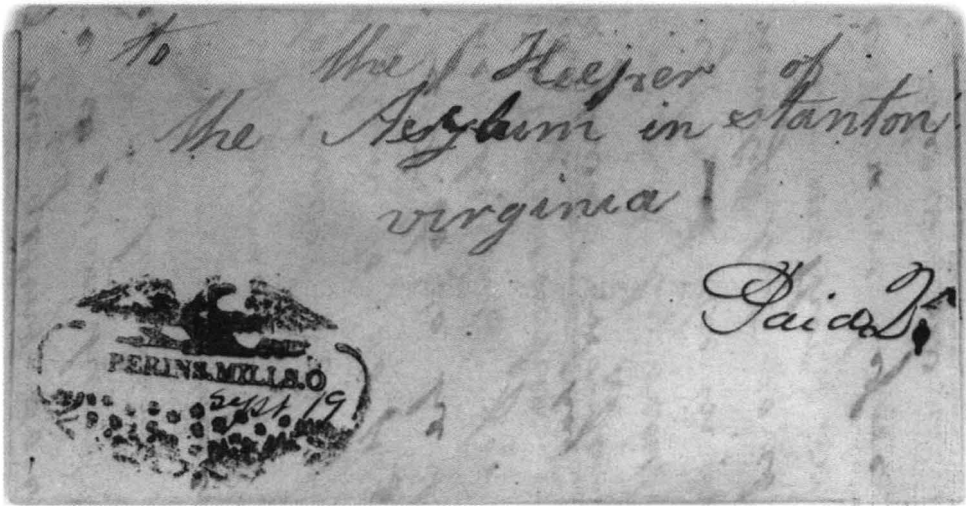 to the Keeper of
the Asylum in stanton
virginia
Paid
PERINS.MILLS.O
Sept 19